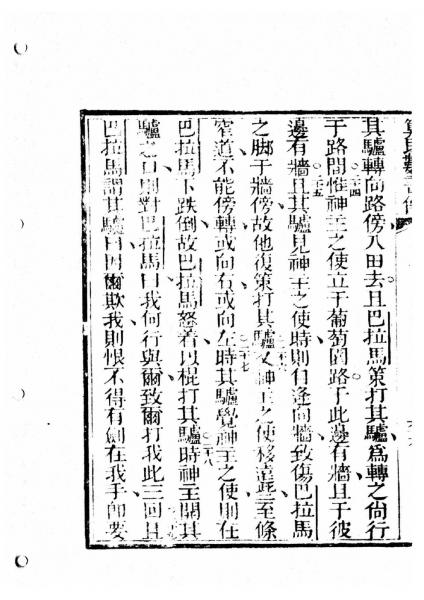 其驢轉向路傍入田去且巴拉馬策打其驢為轉之尚行
于路間惟神主之使立于葡萄園路于此邊有牆且于彼
邊有牆且其驢見神主之使時則自逢向牆致傷巴拉馬
之脚于牆傍故他復策打其驢又神主之使移遠些至條
窄道不能傍轉或向右或向左時其驢覺神主之使則在
巴拉馬下跌倒故巴拉馬怒着以棍打其驢時神主開其
驢之口則對巴拉馬曰我何行與爾致爾打我此三回且
巴拉馬謂其驢曰因爾欺我則恨不得有劍在我手即要